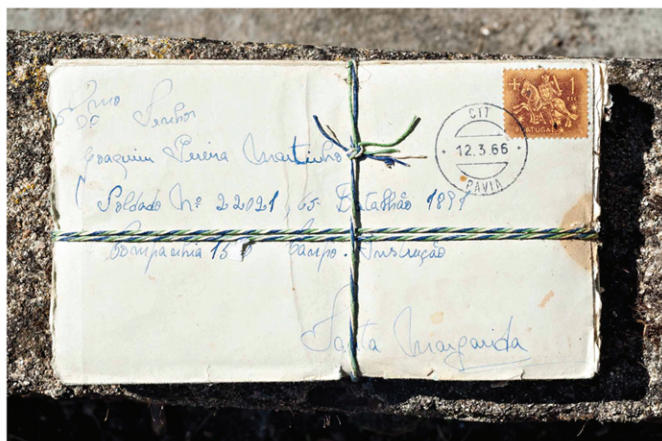 Exmo
Senhor
Joaquim Pereira Martinho
Soldado Nº 22021, 65 Batalhão 1891
Companhia 15 Campo. Instrução
Santa Margarida
1
PORTUGAL
CTT
12.3.66
PAVIA